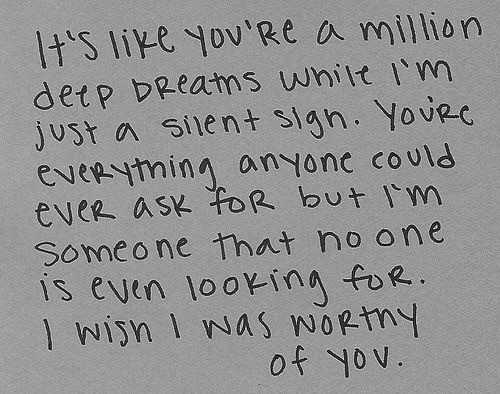 It's like you're a million
deep breaths while I'm
just a silent sign. You're
everything anyone could
ever ask for but I'm
someone that no one
is even looking for.
I wish I was worthy
of you.